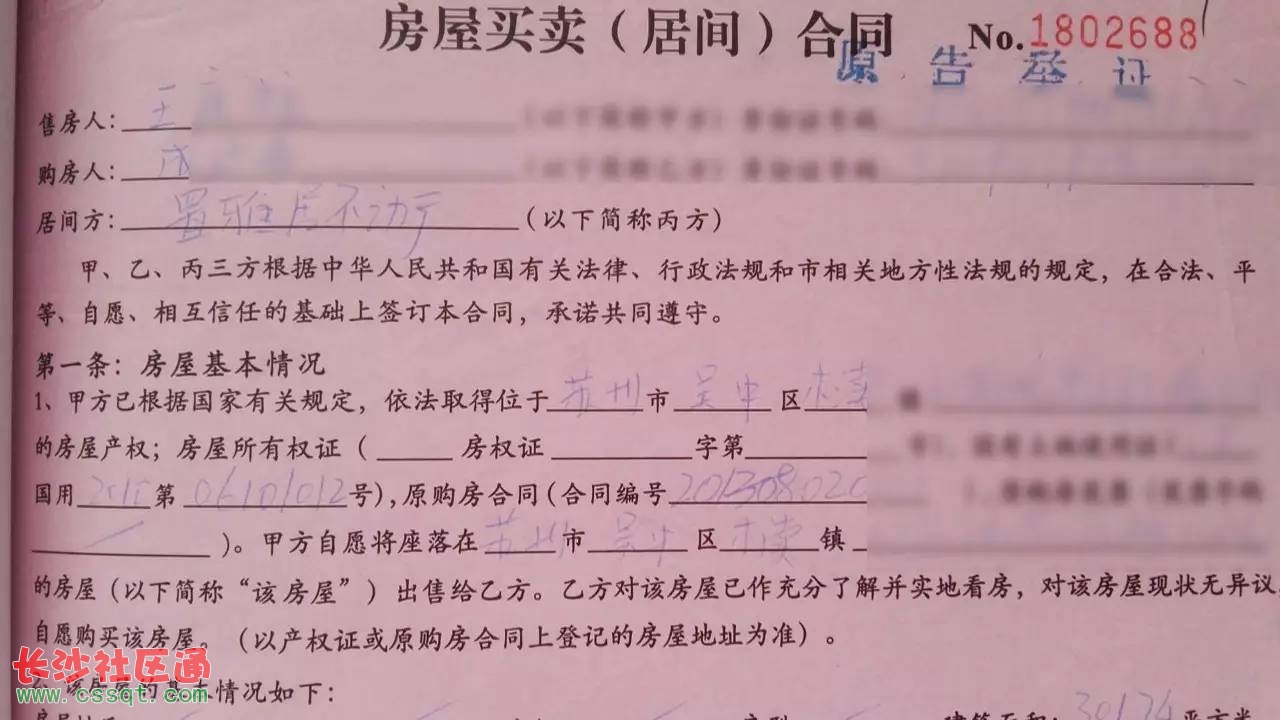 房屋买卖（居间）合同 No.1802688
原告举证
售房人：王
购房人：
居间方：置雅居不动产（以下简称丙方）
甲、乙、丙三方根据中华人民共和国有关法律、行政法规和市相关地方性法规的规定，在合法、平
等、自愿、相互信任的基础上签订本合同，承诺共同遵守。
第一条：房屋基本情况
1、甲方已根据国家有关规定，依法取得位于苏州市吴中区木渎
的房屋产权；房屋所有权证（ 房权证 字第
国用 第06101012号），原购房合同（合同编号201308020
）。甲方自愿将座落在苏州市吴中区木渎镇
的房屋（以下简称“该房屋”）出售给乙方。乙方对该房屋已作充分了解并实地看房，对该房屋现状无异议，
自愿购买该房屋。（以产权证或原购房合同上登记的房屋地址为准）。
该房屋的基本情况如下：
建筑面积： 平方米
长沙社区通
www.cssqt.com